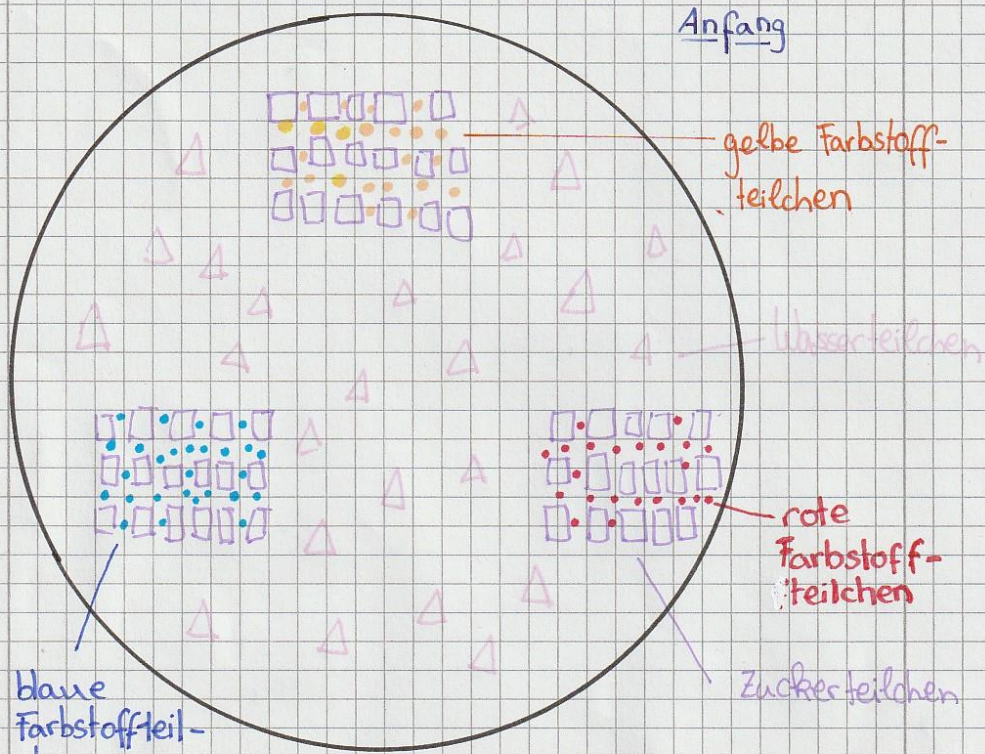 Anfang
gelbe Farbstoff-
teilchen
Wasserteilchen
rote
Farbstoff-
teilchen
Zuckerteilchen
blaue
Farbstoffteil-